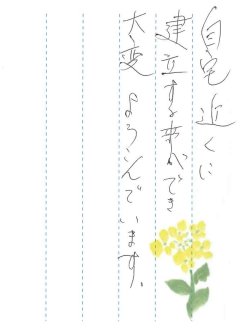 自宅近くに
建立する事ができ
大変よろこんでいます。